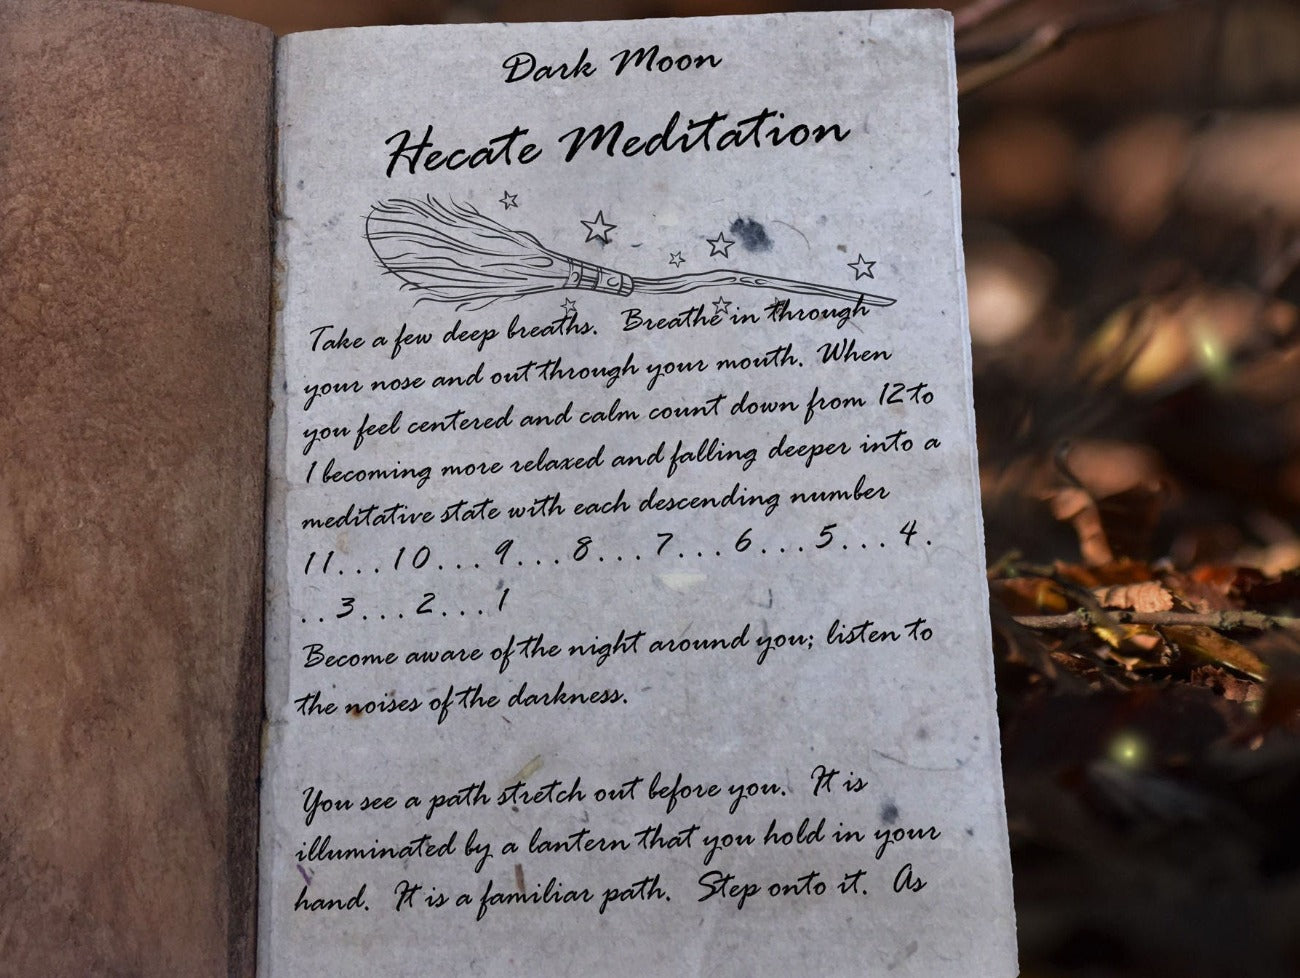 Dark Moon
Hecate Meditation
Take a few deep breaths. Breathe in through
your nose and out through your mouth. When
you feel centered and calm count down from 12 to
1 becoming more relaxed and falling deeper into a
meditative state with each descending number
11...10...9...8...7...6...5...4.
..3...2...1
Become aware of the night around you; listen to
the noises of the darkness.
You see a path stretch out before you. It is
illuminated by a lantern that you hold in your
hand. It is a familiar path. Step onto it. As